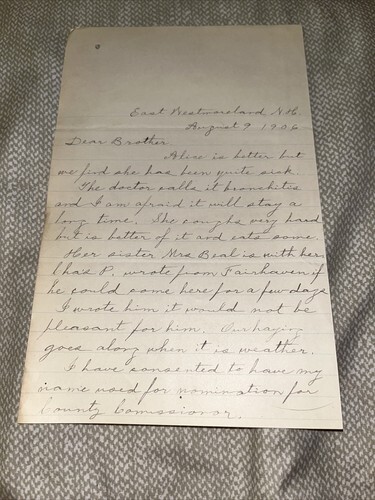 East Westmoreland N.H.
August 9 1906
Dear Brother
Alice is better but
we find she has been quite sick.
The doctor calls it bronchites
and I am afraid it will stay a
long time. She coughs very hard
but is better of it and eats some.
Her sister Mrs Beal is with her
Chas P. wrote from Fairhaven if
he could come here for a few days
I wrote him it would not be
pleasant for him. Our haying
goes along when it is weather.
I have consented to have my
name used for nomination for
County Comissionor.